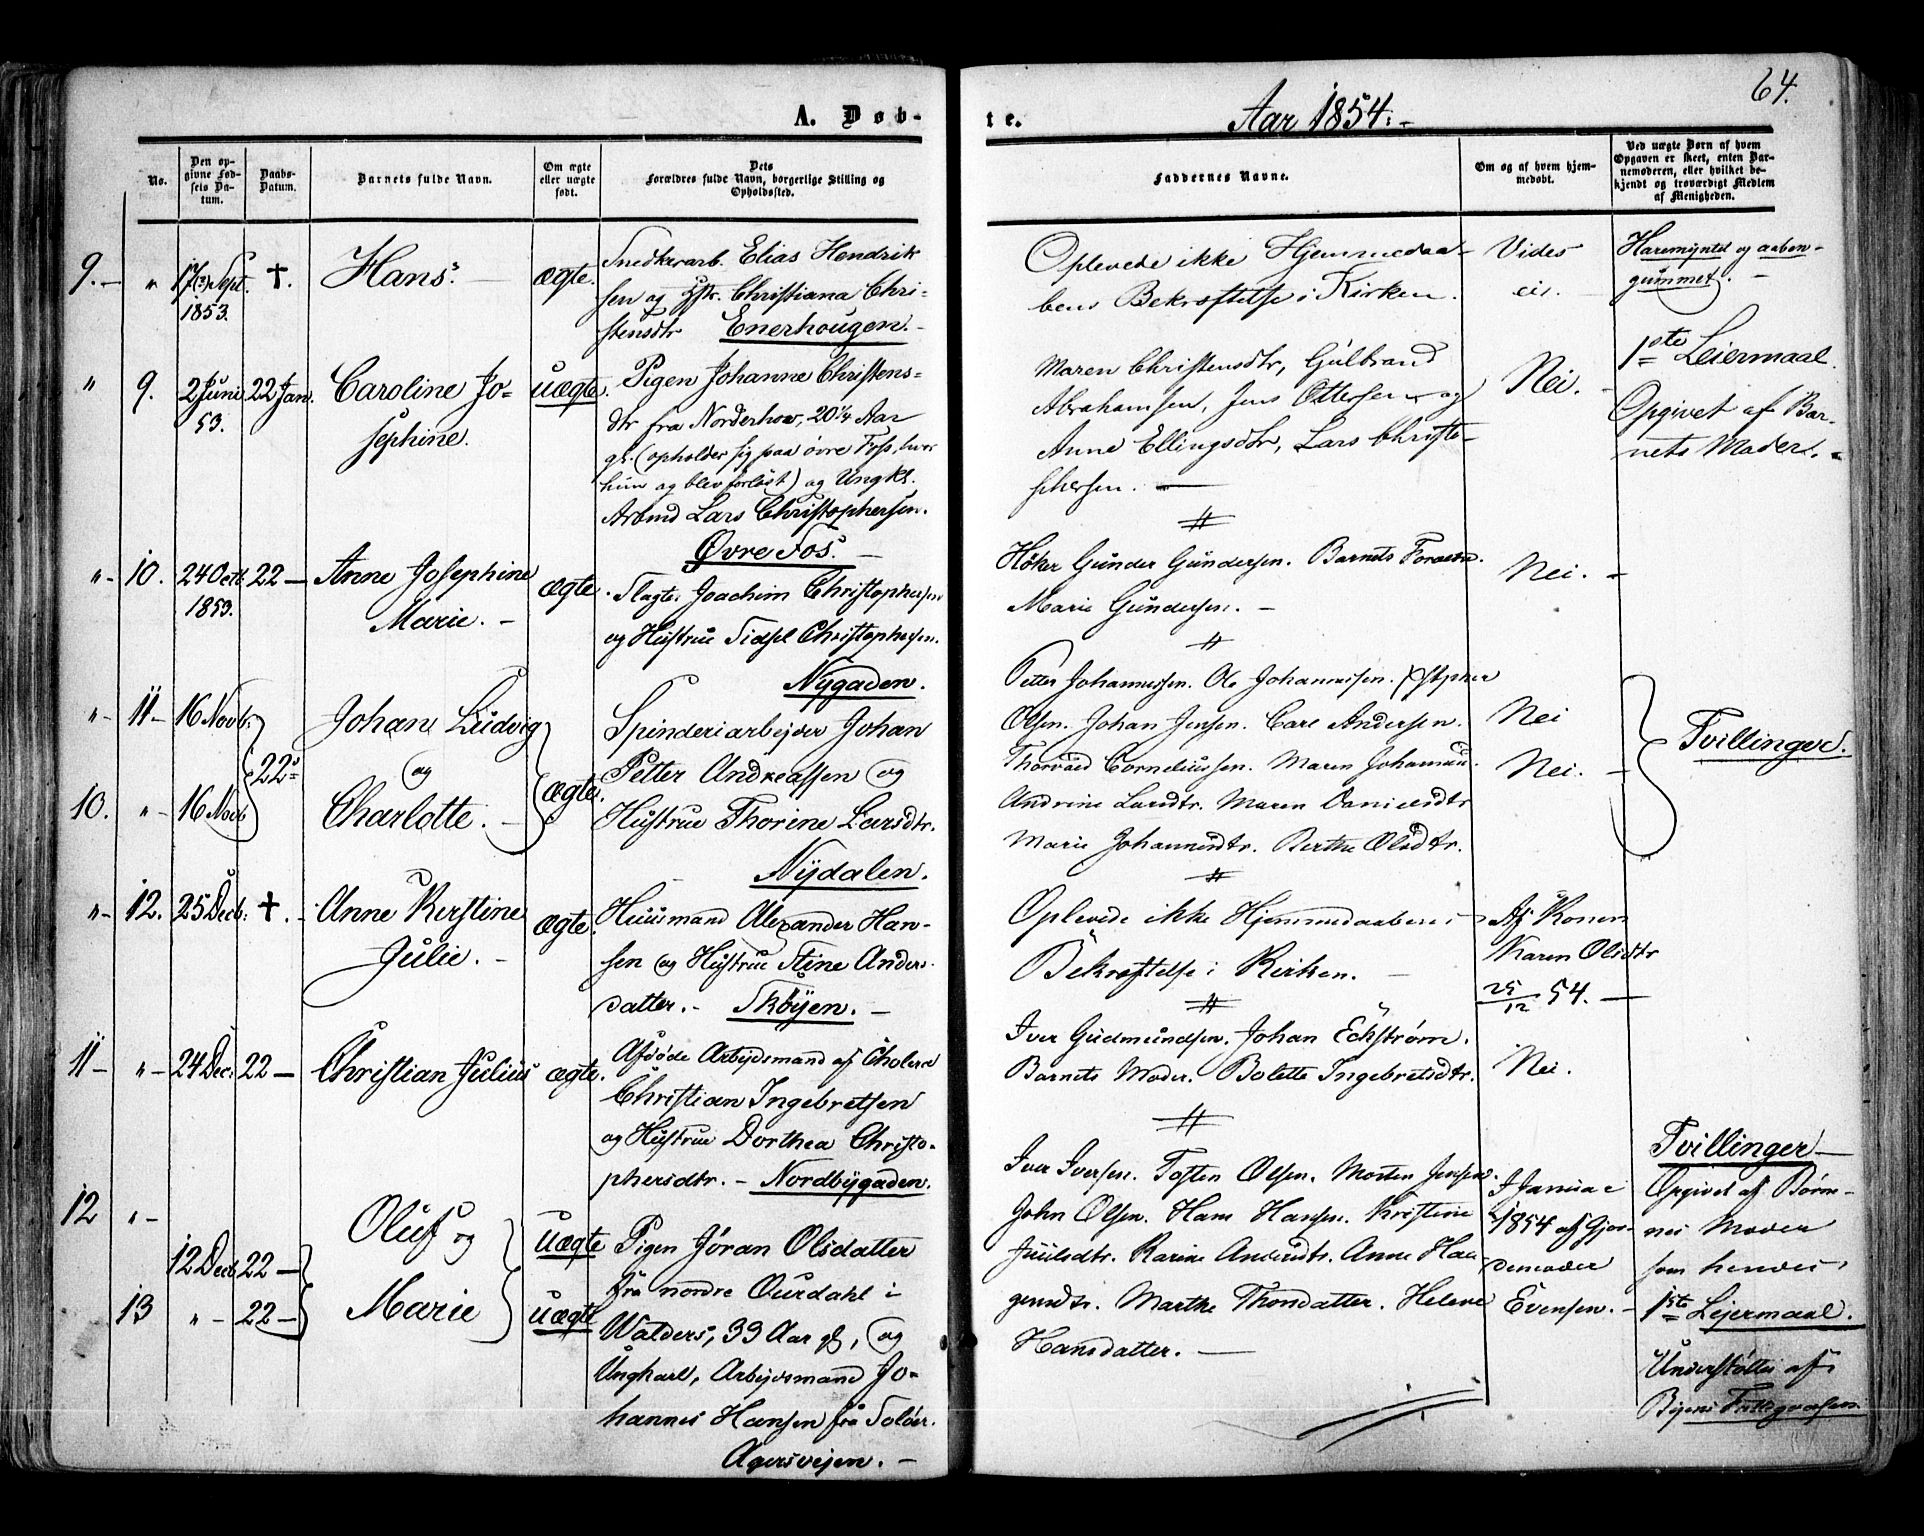 64.
A. Døb-
te.
Aar 1854.
No.
Den op-
givne Fød-
sels Da-
tum.
Daabs-
Datum.
Barnets fulde Navn.
Om ægte
eller uægte
født.
Dets
Forældres fulde Navn, borgerlige Stilling og
Opholdssted.
Faddernes Navne.
Om og af hvem hjem-
medøbt.
Ved uægte Børn af hvem
Opgaven er skeet, enten Bar-
nemoderen, eller hvilket be-
kjendt og troværdigt Medlem
af Menigheden.
9.- " Sept. 1853. †. Hans. ægte.
Snedkerarb. Elias Hendrik
sen og Hstr. Christiana Chri-
stensdtr Enerhougen.-
Oplevede ikke Hjemmedaa-
bens Bekræftelse i Kirken.
Vides
ei.
Haremyntet og aaben-
gummet.-
" 9. 2 Juni 53. 22 Jan. Caroline Jo-
sephine. uægte.
Pigen Johanne Christens-
dtr fra Norderhov, 20¼ Aar
gl. (opholder sig paa øvre Foss, hvor
hun og blev forløst) og Ungkl.
Arbmd Lars Christophersen.
Øvre Fos.-
Maren Christensdtr, Gulbrand
Abrahamsen, Jens Ottersen og
Anne Ellingsdtr, Lars Christo-
phersen.-
Nei.
1ste Leiermaal.
Opgivet af Bar-
nets Moder.-
"- 10. 24 Octb. 1853. 22- Anne Josephine
Marie.- ægte.
Slagter Joachim Christophersen
og Hustrue Sidsel Christophersen.
Nygaden.
Høker Gunder Gundersen. Barnets Forældre.
Marie Gundersen.-
Nei.-
"- 11- 16 Novb. Johan Ludvig
og
10. "- 16 Novb 22- Charlotte.- ægte.
Spinderiarbejder Johan
Petter Andreassen og
Hustrue Thorine Larsdtr.
Nydalen.
Petter Johannessen. Ole Johannesen.
Olsen. Johan Jensen. Carl Andersen.
Thorvald Corneliussen. Maren
Andrine Larsdtr. Maren Danielsdtr
Marie Johannesdtr. Berthe Olsdtr.
Nei
Nei.-
Tvillinger.
"- 12. 25 Decb: †.- Anne Kirstine
Julie.- ægte.
Huusmand Alexander Han-
sen og Hustrue Stine Anders-
datter.- Skøyen.-
Oplevede ikke Hjemmedaabens
Bekræftelse i Kirken.-
Af Konen
Karen Olsdtr
25/12 54.-
11- "- 24 Dec: 22- Christian Julius ægte.
Afdøde Arbejdsmand af Cholera
Christian Ingebretsen
og Hustrue Dorthea Christo-
phersdtr.- Nordbygaden.
Iver Gudmundsen. Johan Eckstrøm.
Barnets Moder. Bolette Ingebretsdtr.
Nei.
12 "- 12 Decb 22- Oluf og uægte
13 "- 22- Marie uægte
Pigen Jøran Olsdatter
fra nordre Ourdahl i
Walders, 33 Aar gl, og
Ungkarl, Arbejdsmand Jo-
hannes Hansen fra Soløer.
Agersvejen.-
Iver Iversen. Tosten Olsen. Morten Jensen.
John Olsen. Hans Hansen. Kristine
Juulsdtr. Karine Andersdtr. Anne Haa-
gensdtr. Marthe Thordatter. Helene
Hansdatter.-
I Januar
1854 af Gjor-
demoder
Evensen.-
Tvillinger-
Opgivet af Børne-
nes Moder
som hendes
1ste Lejermaal.
Understøttes af
Byens Fattigvæsen.